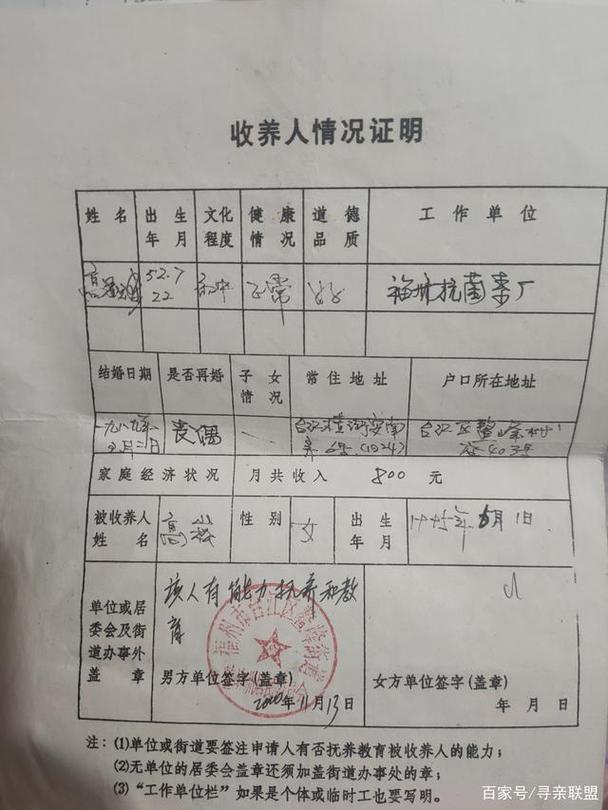 收养人情况证明
姓名 出生年月 文化程度 健康情况 道德品质 工作单位
52.7 22 初中 正常 好 福州抗菌素厂
结婚日期 是否再婚 子女情况 常住地址 户口所在地址
一九八九年 丧偶 台江区鳌峰村
家庭经济状况 月共收入 800 元
被收养人姓名 高 性别 女 出生年月 月1日
单位或居委会及街道办事外盖章
该人有能力抚养和教育
福州市台江区鳌峰街道
男方单位签字(盖章)
2000年11月13日
女方单位签字(盖章)
年 月 日
注：(1)单位或街道要签注申请人有否抚养教育被收养人的能力；
(2)无单位的居委会盖章还须加盖街道办事处的章；
(3)“工作单位栏”如果是个体或临时工也要写明。
百家号/寻亲联盟